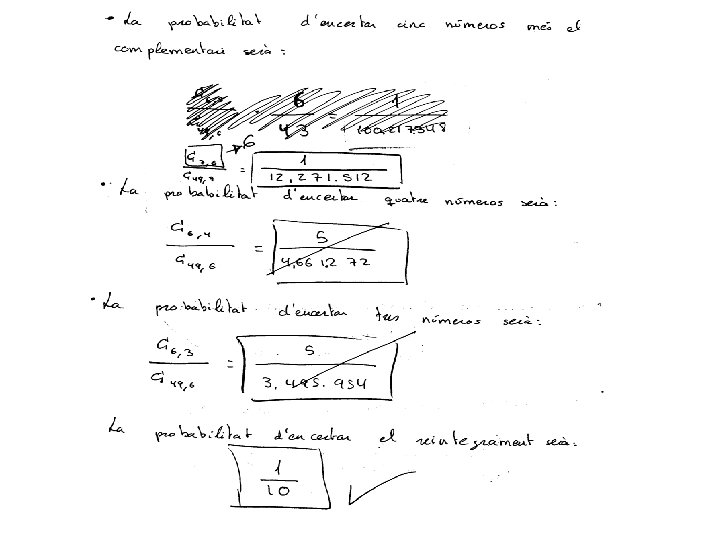 • La probabilitat d'encertar cinc números més el
complementari serà:
6 1
→ 6
C 1
C49, = 12,271.512
• La probabilitat d'encertar quatre números serà:
C6,4 5
C49,6 = 4,661272
• La probabilitat d'encertar tres números serà:
C6,3 5
C49,6 = 3,495.954
La probabilitat d'encertar el reintegrament serà:
1
10